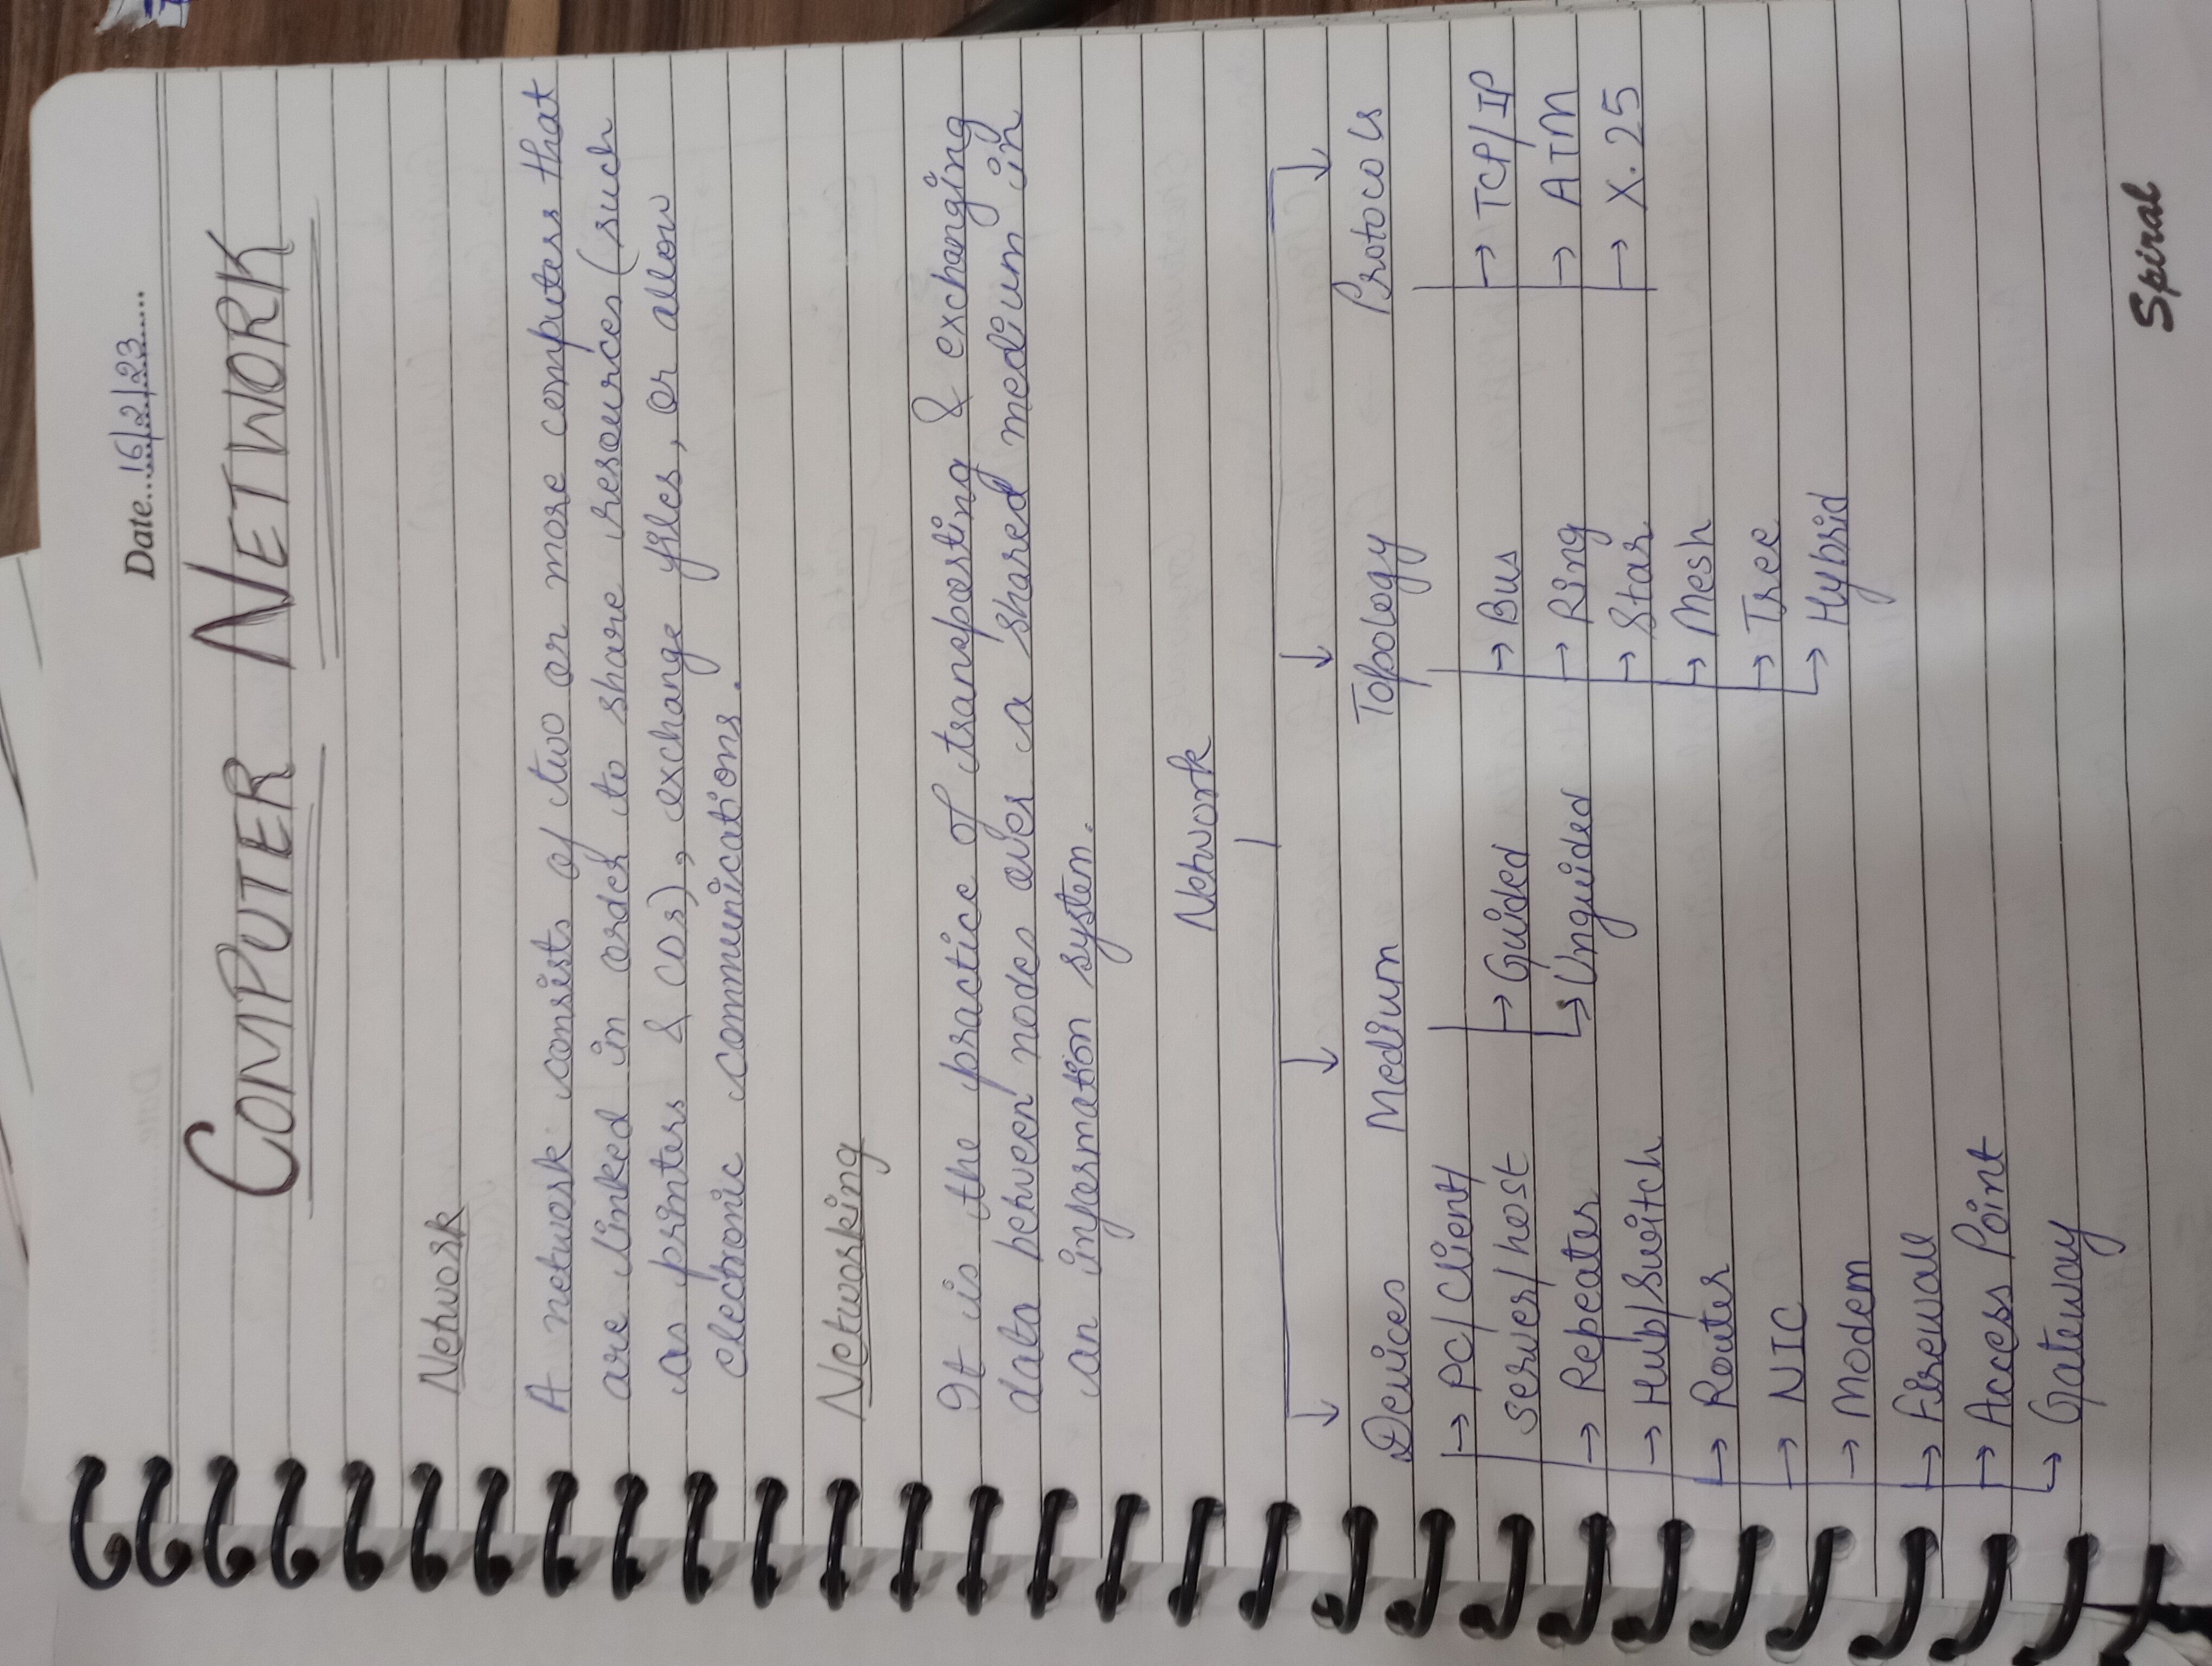 Date...16/2/23.....
COMPUTER NETWORK
Network
A network consists of two or more computers that
are linked in order to share resources (such
as printers & CDs), exchange files, or allow
electronic communications.
Networking
It is the practice of transporting & exchanging
data between nodes over a shared medium in
an information system.
Network
Devices Medium Topology Protocols
→ PC/Client/
server/host
→ Repeater
→ Hub/Switch
→ Router
→ NIC
→ Modem
→ Firewall
→ Access Point
→ Gateway
→ Guided
→ Unguided
→ Bus
→ Ring
→ Star
→ Mesh
→ Tree
→ Hybrid
→ TCP/IP
→ ATM
→ X.25
Spiral